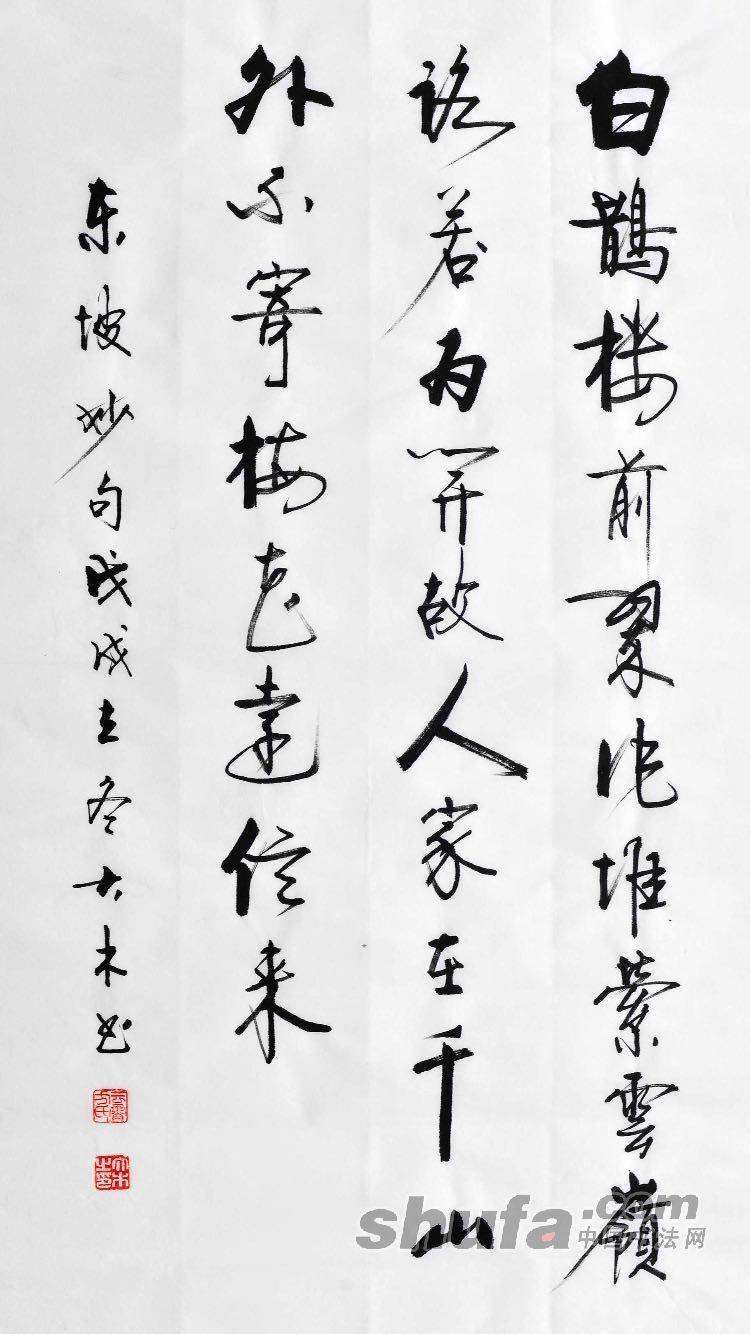 白鹊楼前翠作堆縈雲嶺
路若为開故人家在千山
外不寄梅花遠信来
东坡妙句戊戌立冬大木书
shufa.com
中国书法网